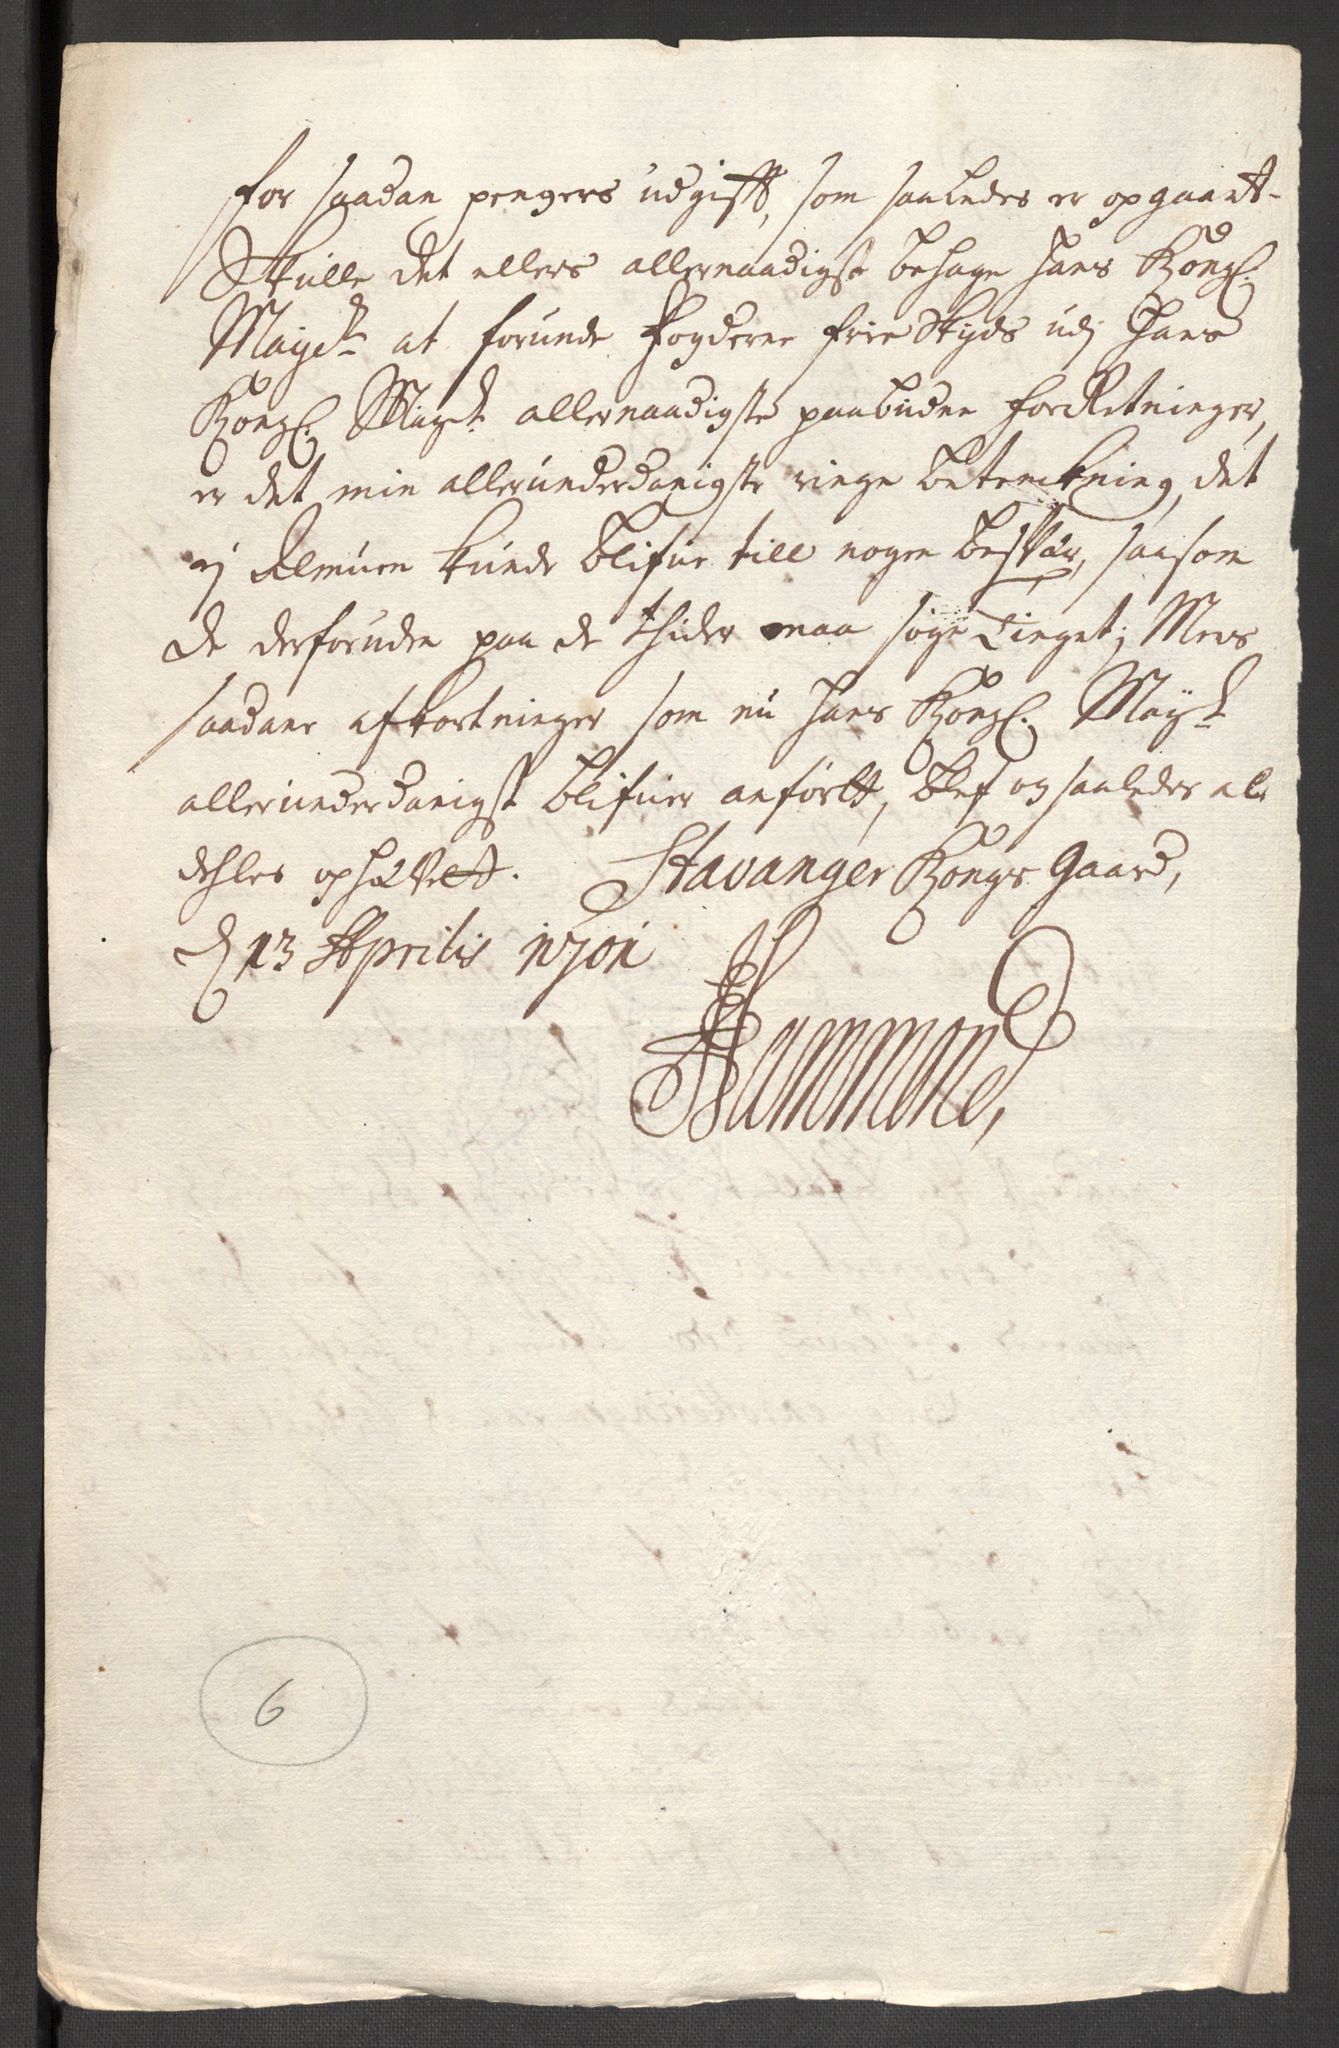 for saadan pengers udgifft, som saaledes er opgaaet.
Skulle det ellers allernaadigst behage Hans Kongl:
Mayest at forunde fogderne frie Skyds udj Hans
Kongl: Mayst allernaadigste paabudne forRetninger,
er det min allerunderdanigste ringe betenckning, det
ej Almuen kunde blifue till nogen besvær, saasom
de desforuden paa de thider maa søge Tinget; Mens
saadane afkortninger som nu Hans Kongl. Mayst
allerunderdanigst blifuer anførtt, blef og saaledes al
dehles ophævett. Stavanger Kongs Gaard,
d 13 Aprilis 1701
Hammond,
6